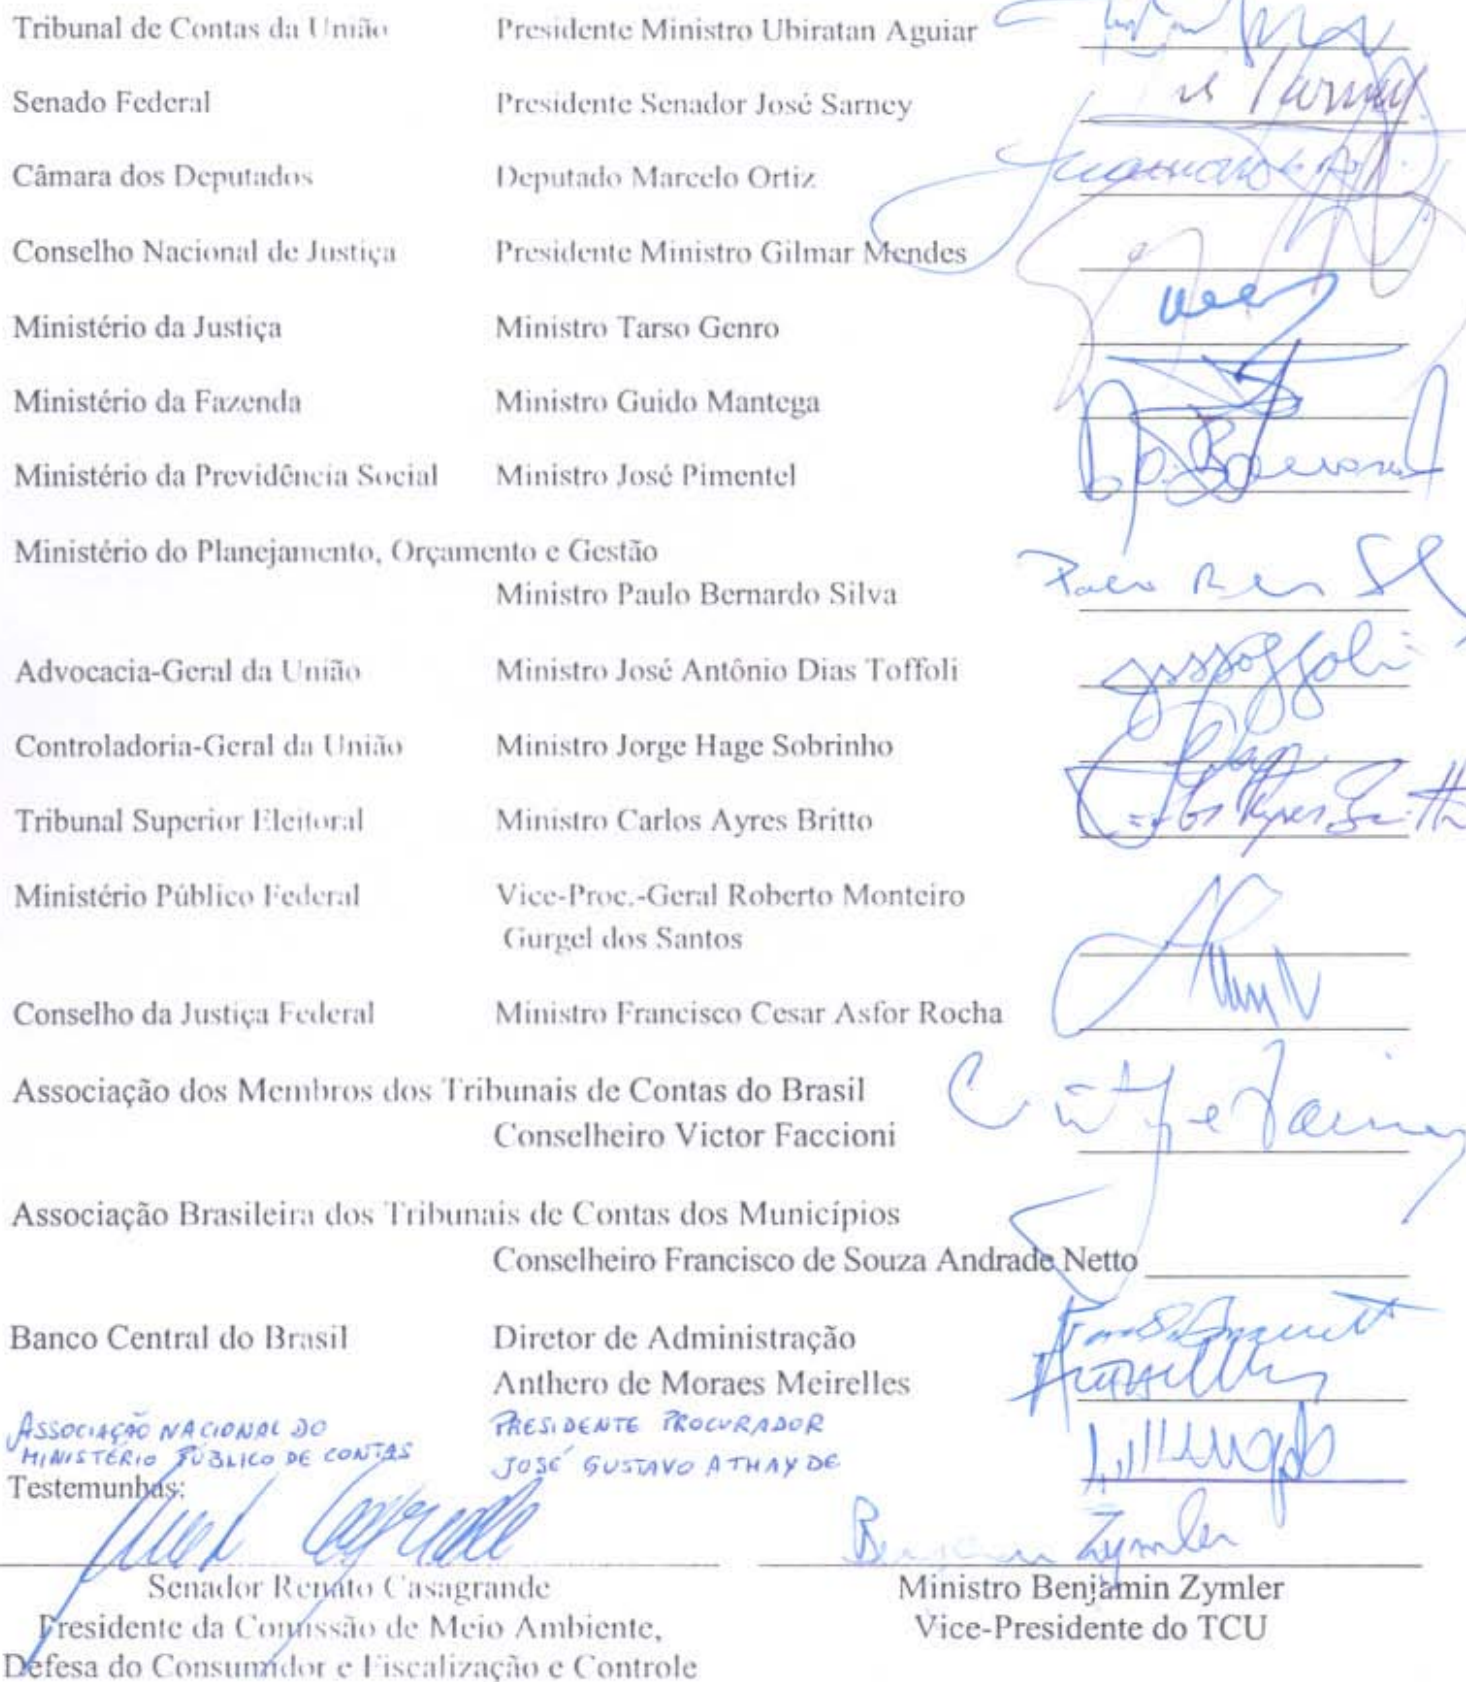 Tribunal de Contas da União Presidente Ministro Ubiratan Aguiar
Senado Federal Presidente Senador José Sarney
Câmara dos Deputados Deputado Marcelo Ortiz
Conselho Nacional de Justiça Presidente Ministro Gilmar Mendes
Ministério da Justiça Ministro Tarso Genro
Ministério da Fazenda Ministro Guido Mantega
Ministério da Previdência Social Ministro José Pimentel
Ministério do Planejamento, Orçamento e Gestão
Ministro Paulo Bernardo Silva
Advocacia-Geral da União Ministro José Antônio Dias Toffoli
Controladoria-Geral da União Ministro Jorge Hage Sobrinho
Tribunal Superior Eleitoral Ministro Carlos Ayres Britto
Ministério Público Federal Vice-Proc.-Geral Roberto Monteiro
Gurgel dos Santos
Conselho da Justiça Federal Ministro Francisco Cesar Asfor Rocha
Associação dos Membros dos Tribunais de Contas do Brasil
Conselheiro Victor Faccioni
Associação Brasileira dos Tribunais de Contas dos Municípios
Conselheiro Francisco de Souza Andrade Netto
Banco Central do Brasil Diretor de Administração
Anthero de Moraes Meirelles
ASSOCIAÇÃO NACIONAL DO PRESIDENTE PROCURADOR
MINISTÉRIO PÚBLICO DE CONTAS JOSÉ GUSTAVO ATHAYDE
Testemunhas:
Benjamin Zymler
Senador Renato Casagrande Ministro Benjamin Zymler
Presidente da Comissão de Meio Ambiente, Vice-Presidente do TCU
Defesa do Consumidor e Fiscalização e Controle